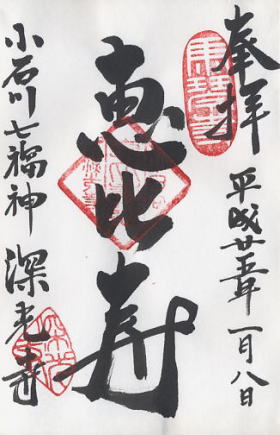 奉拝
平成廿五年一月八日
恵比寿
小石川七福神 深光寺